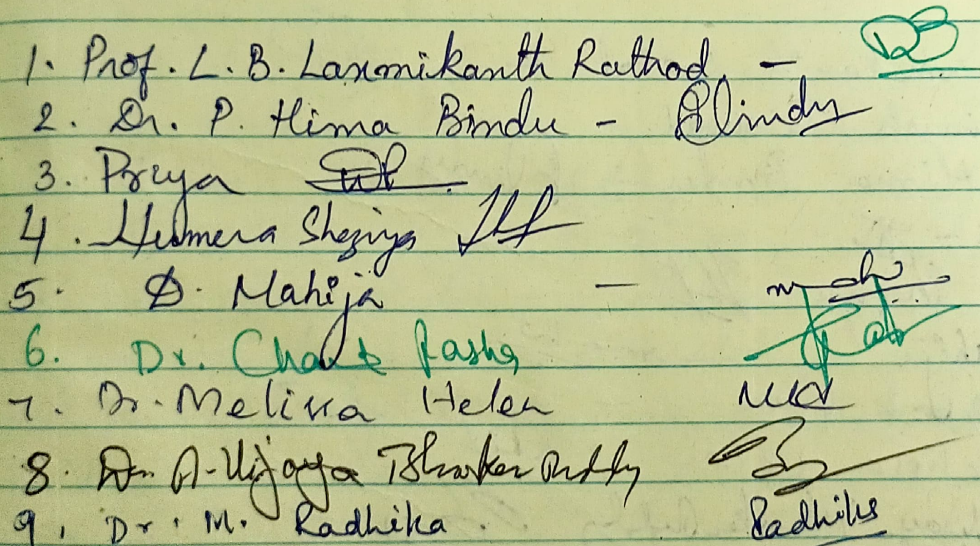 1. Prof. L. B. Laxmikanth Rathod -
2. Dr. P. Hima Bindu - Bindu
3. Priya
4. Humera Shaziya
5. D. Mahija -
6. Dr. Chand Pasha
7. Dr. Melissa Helen
8. Dr. A. Vijaya Bhasker Reddy
9. Dr. M. Radhika. Radhika